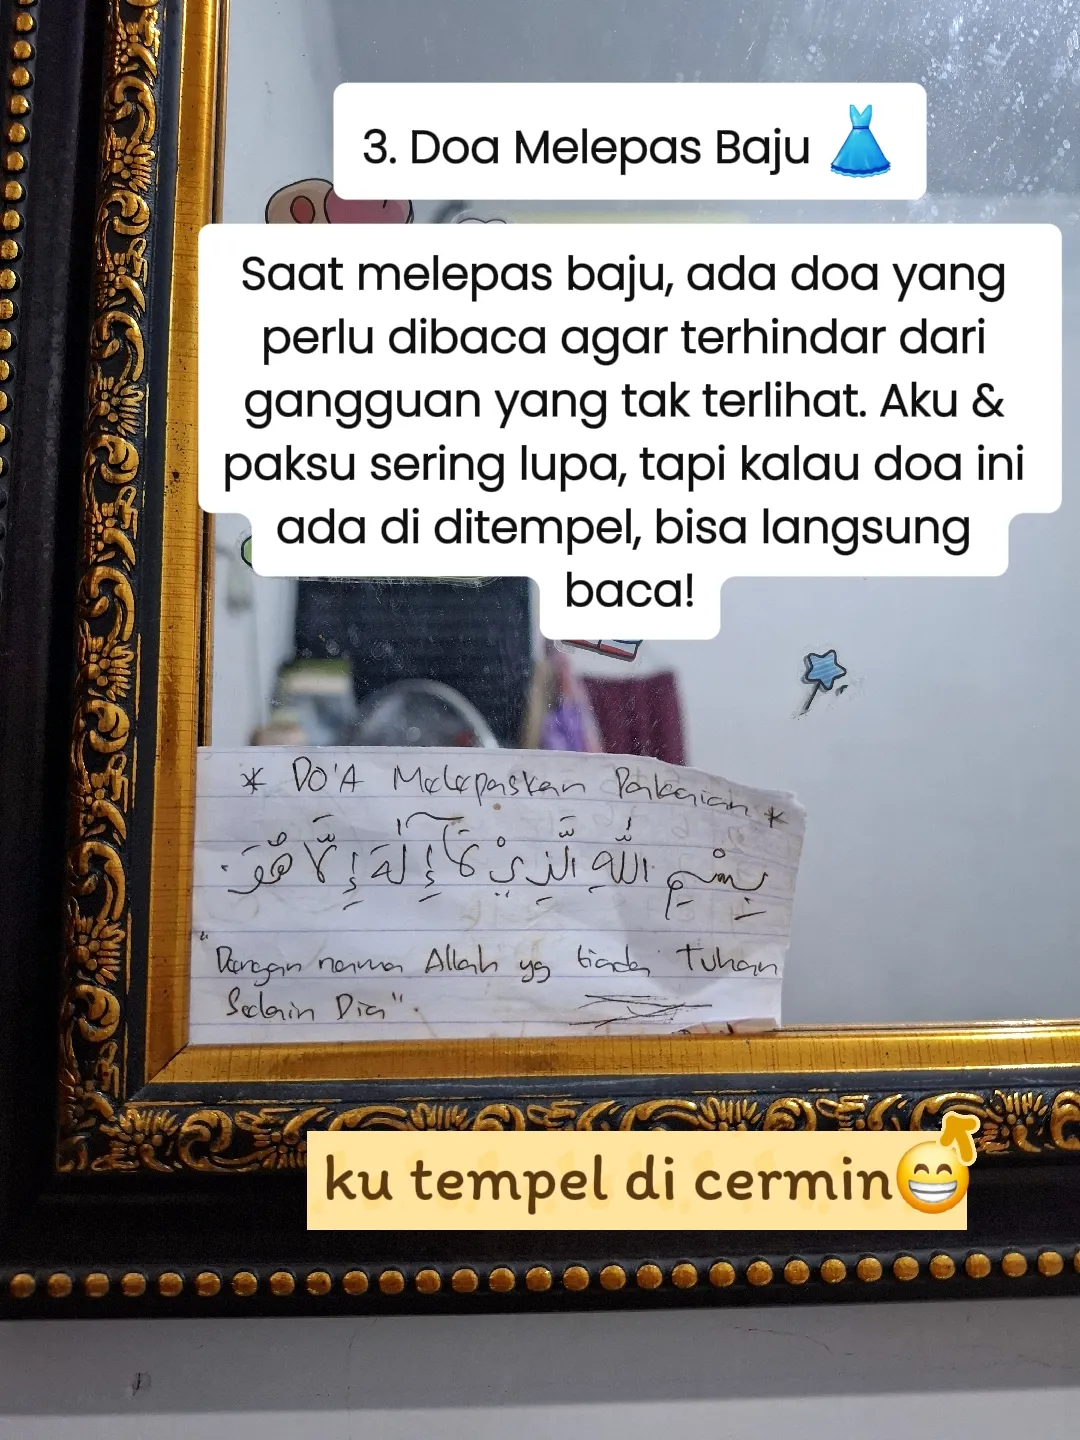 3. Doa Melepas Baju 👗
Saat melepas baju, ada doa yang
perlu dibaca agar terhindar dari
gangguan yang tak terlihat. Aku &
paksu sering lupa, tapi kalau doa ini
ada di ditempel, bisa langsung
baca!
* DO'A Melepaskan Pakaian *
بِسْمِ اللّٰهِ الَّذِيْ لَآ إِلٰهَ إِلَّا هُوَ.
"Dengan nama Allah yg tiada Tuhan
Selain Dia".
ku tempel di cermin😁